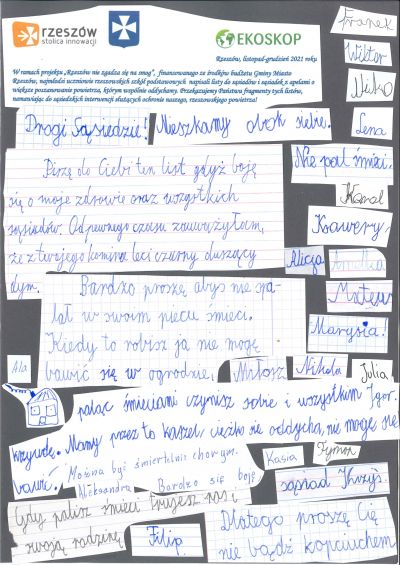 rzeszów
stolica innowacji
EKOSKOP
Rzeszów, listopad-grudzień 2021 roku
W ramach projektu „Rzeszów nie zgadza się na smog”, finansowanego ze środków budżetu Gminy Miasto
Rzeszów, najmłodsi uczniowie rzeszowskich szkół podstawowych napisali listy do sąsiadów i sąsiadek z apelami o
większe poszanowanie powietrza, którym wspólnie oddychamy. Przekazujemy Państwu fragmenty tych listów,
namawiając do sąsiedzkich interwencji służących ochronie naszego, rzeszowskiego powietrza!
Franek
Wiktor
Niko
Lena
Drogi Sąsiedzie! Mieszkamy obok siebie.
Nie pal śmieci.
Piszę do Ciebie ten list gdyż boję
się o moje zdrowie oraz wszystkich
sąsiadów. Odpewnego czasu zauważyłam,
że z twojego komina leci czarny duszący
dym.
Karol
Ksawery
Alicja
Amelia
Mateusz
Marysia!
Bardzo proszę abyś nie pa-
lał w swoim piecu śmieci.
Kiedy to robisz ja nie mogę
bawić się w ogrodzie.
Ala
Miłosz
Nikola
Julia
Igor
paląc śmieciami czynisz sobie i wszystkim
krzywdę. Mamy przez to kaszel, ciężko się oddycha, nie mogę się
bawić!
Można być śmiertelnie chorym.
Aleksandra
Bardzo się boję
Kasia
Tymon
sąsiad Krzyś.
Gdy palisz śmieci trujesz nas i
swoją rodzinę
Filip
Dlatego proszę Cię
nie bądź kopciuchem